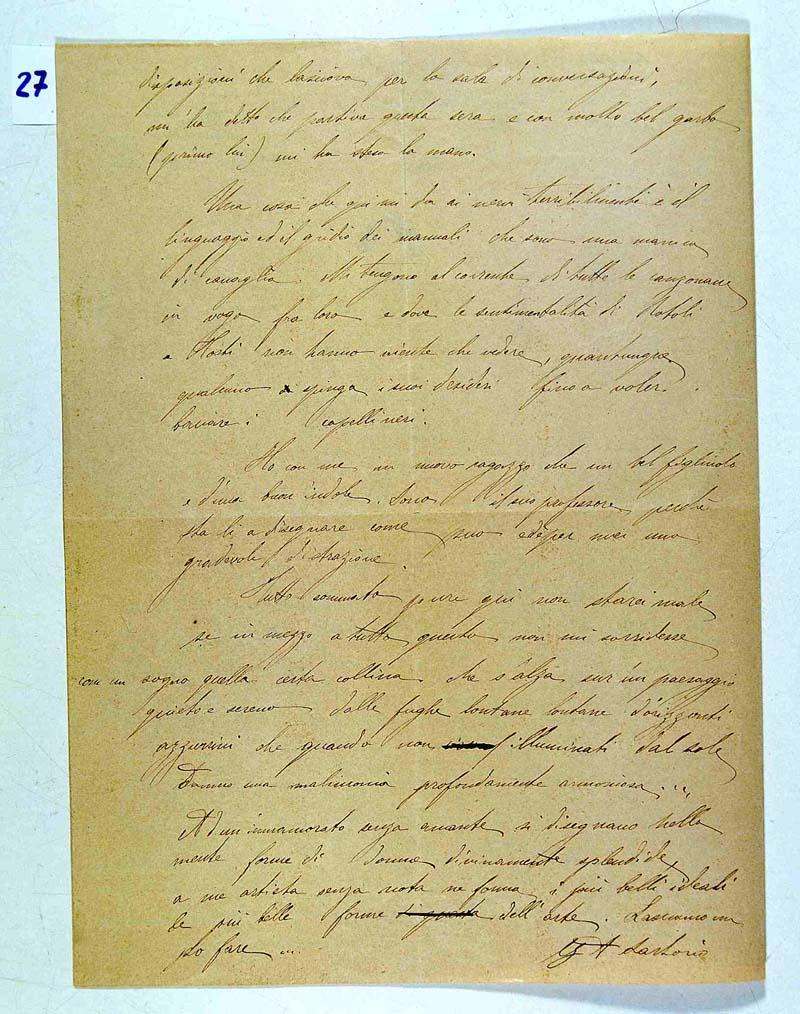 27
disposizioni che lasciava per la sala di conversazioni,
mi ha detto che partiva questa sera e con molto bel garbo
(primo lui) mi ha steso la mano.
Una cosa che qui mi da ai nervi terribilmente è il
linguaggio ed il grido dei manuali che sono una manica
di canaglia. Mi tengono al corrente di tutte le canzonacce
in voga fra loro e dove le sentimentalità di Rotoli
e Tosti non hanno niente che vedere, quantunque
qualcuno spinga i suoi desideri fino a voler
baciare i capelli neri.
Ho con me un nuovo ragazzo che un bel figliuolo
e d'una buon'indole. Sono il suo professore perché
sta lì a disegnare come può ed è per me una
gradevole distrazione.
Tutto sommato pure qui non starei male
se in mezzo a tutto questo non mi sorridesse
come un sogno quella certa collina che s'alza sur un paesaggio
quieto e sereno dalle fughe lontane lontane d'orizzonti
azzurrini che quando non illuminati dal sole
danno una malinconia profondamente armoniosa....
Ad un innamorato senza amante si disegnano nella
mente forme di donne divinamente splendide,
a me artista senza nota ne forma i più belli ideali
le più belle forme dell'arte. Lasciamomi
po fare ...
G A Sartorio